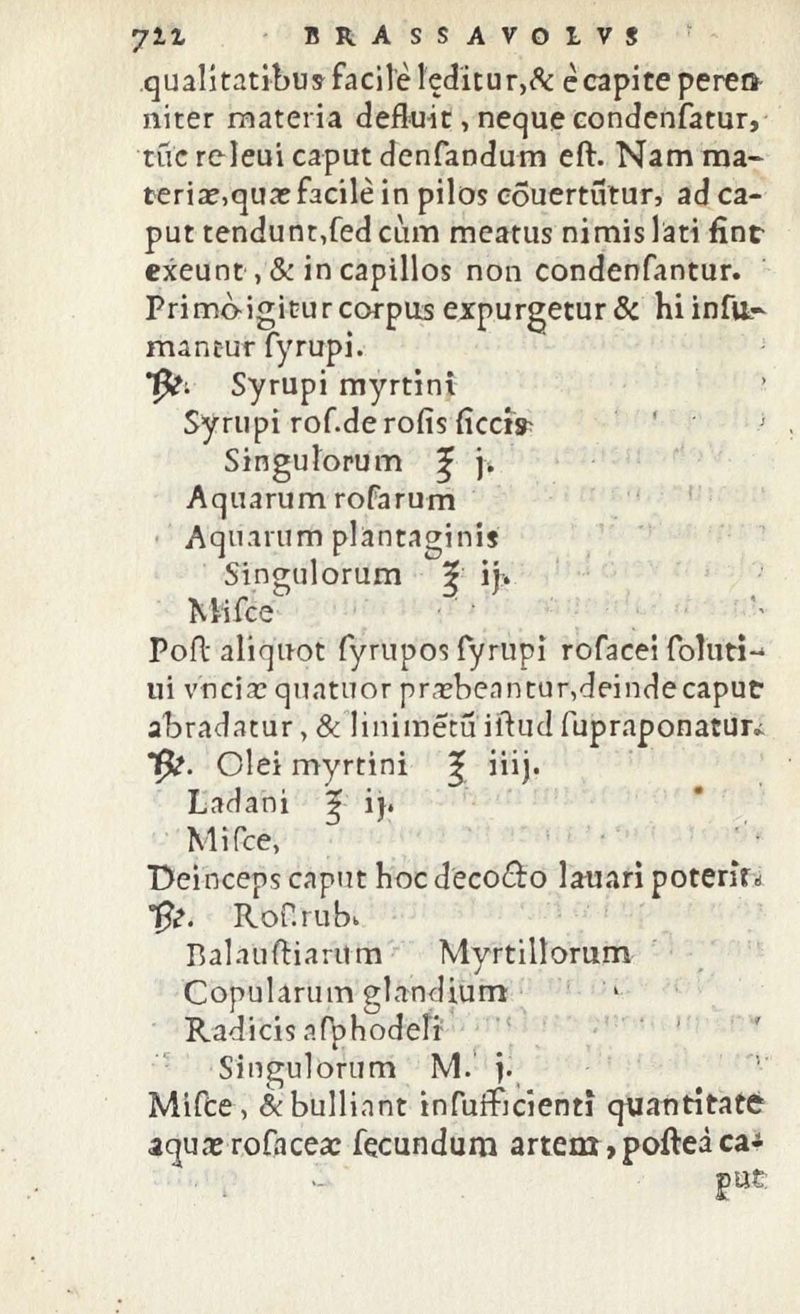 722 BRASSAVOLVS
qualitatibus facilè lęditur,& è capite peren
niter materia defluit, neque condenſatur,
tūc re leui caput denſandum eſt. Nam ma-
teriæ,quæ facilè in pilos cōuertūtur, ad ca-
put tendunt,ſed cùm meatus nimis lati ſint
exeunt, & in capillos non condenſantur.
Primò igitur corpus expurgetur & hi inſu-
mantur ſyrupi.
℞. Syrupi myrtini
Syrupi roſ.de roſis ſiccis
Singulorum ℥ j.
Aquarum roſarum
Aquarum plantaginis
Singulorum ℥ ij.
Miſce
Poſt aliquot ſyrupos ſyrupi roſacei ſoluti-
ui vnciæ quatuor præbeantur,deinde caput
abradatur, & linimētū iſtud ſupraponatur.
℞. Olei myrtini ℥ iiij.
Ladani ℥ ij.
Miſce,
Deinceps caput hoc decocto lauari poterit.
℞. Roſ.rub.
Balauſtiarum Myrtillorum
Copularum glandium
Radicis aſphodeli
Singulorum M. j.
Miſce, & bulliant in ſufficienti quantitate
aquæ roſaceæ ſecundum artem, poſteà ca-
put